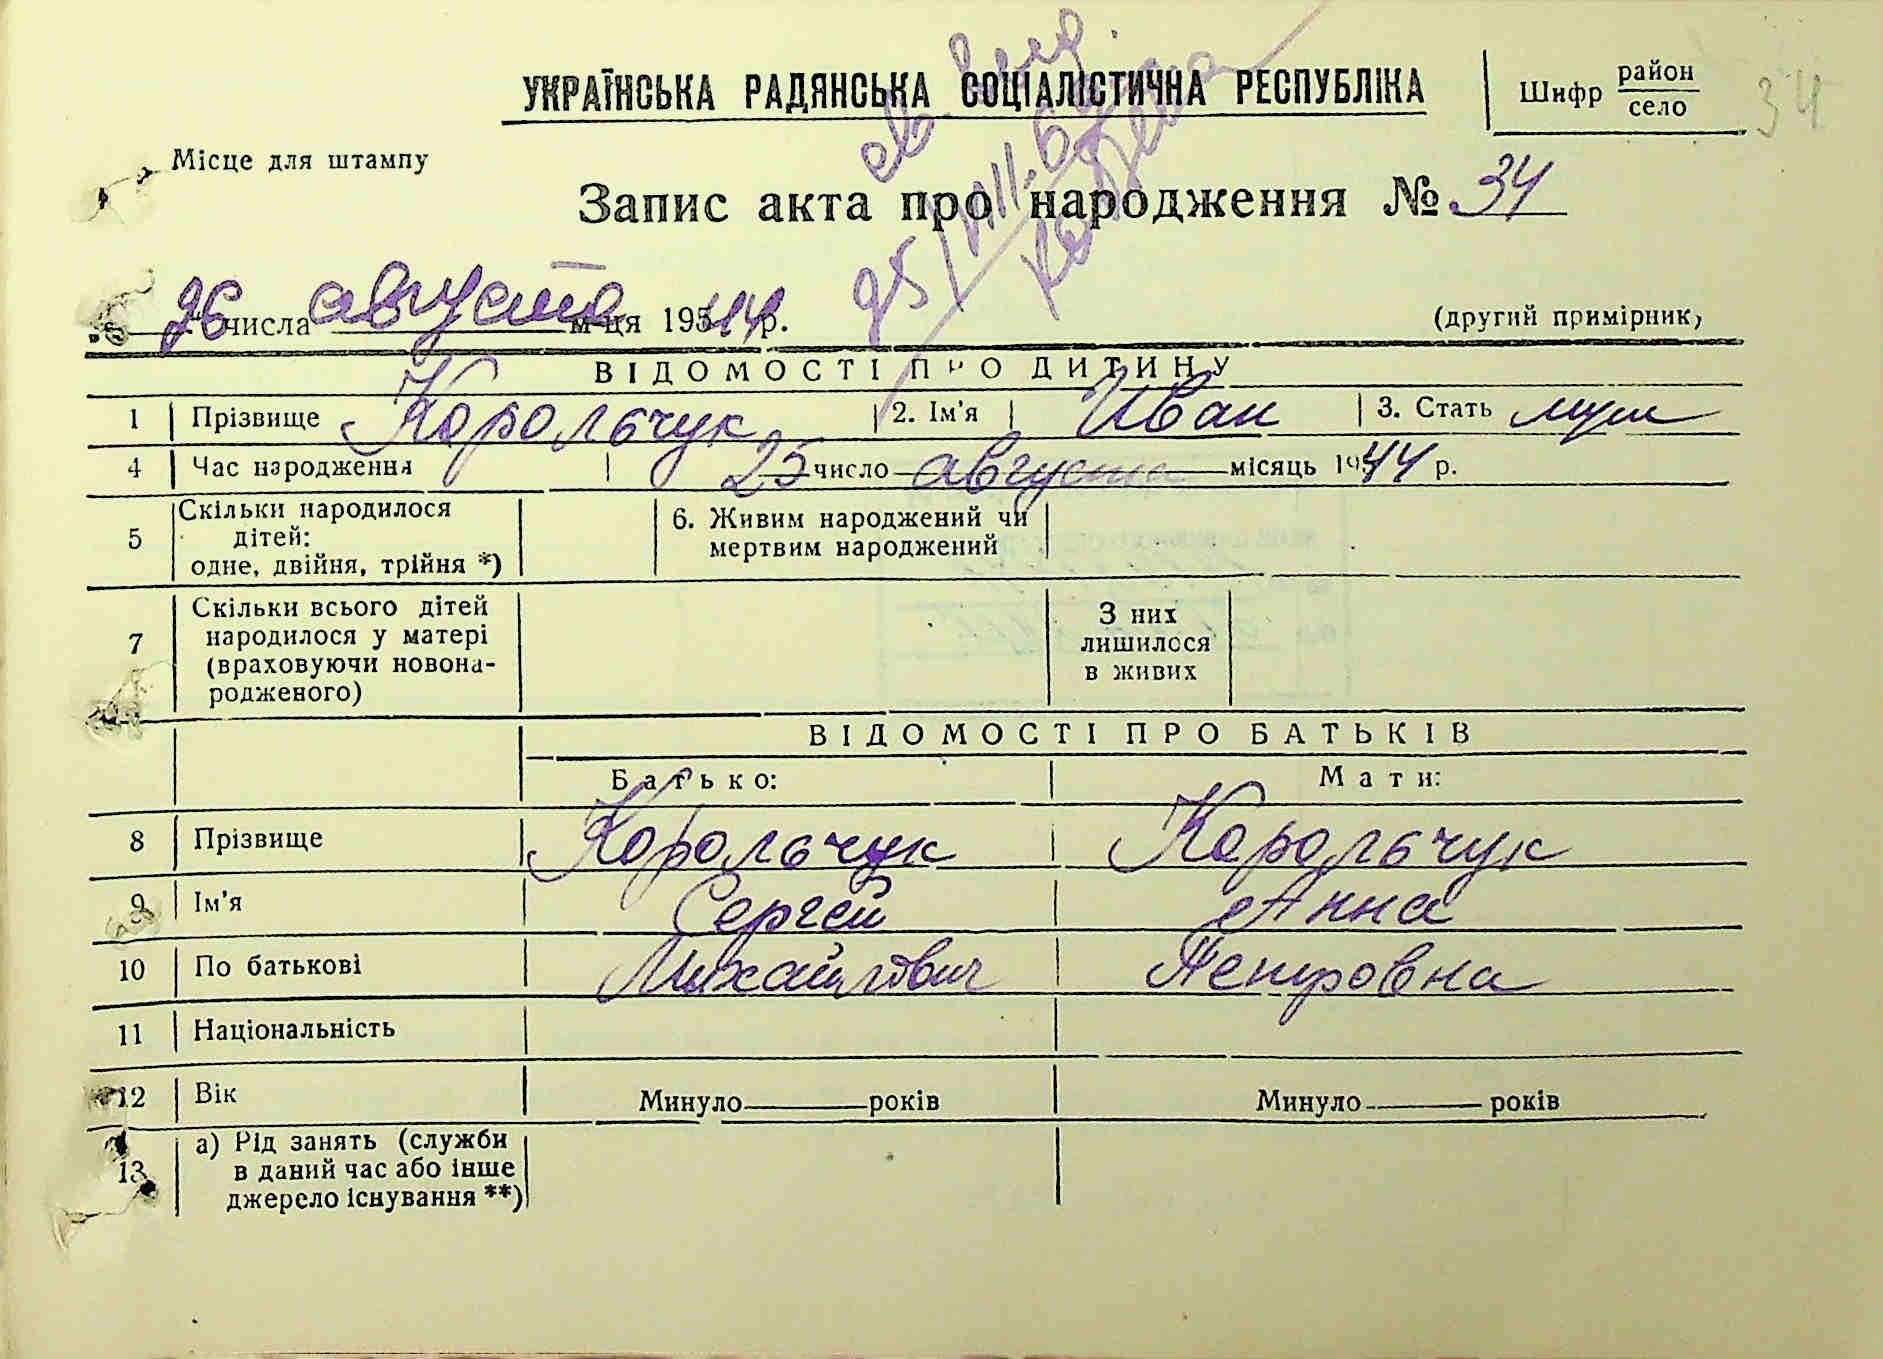 УКРАЇНСЬКА РАДЯНСЬКА СОЦІАЛІСТИЧНА РЕСПУБЛІКА
Шифр район
село
34
Місце для штампу
Запис акта про народження № 34
25/VIII.6
26 числа августа м-ця 1944 р.
(другий примірник,
ВІДОМОСТІ ПРО ДИТИНУ
1 Прізвище Корольчук 2. Ім'я Иван 3. Стать муж
4 Час народження 25 число августа місяць 1944 р.
5 Скільки народилося
дітей:
одне, двійня, трійня *)
6. Живим народжений чи
мертвим народжений
7 Скільки всього дітей
народилося у матері
(враховуючи новона-
родженого)
З них
лишилося
в живих
ВІДОМОСТІ ПРО БАТЬКІВ
Батько: Мати:
8 Прізвище Корольчук Корольчук
9 Ім'я Сергей Анна
10 По батькові Михайлович Петровна
11 Національність
12 Вік Минуло років Минуло років
13 а) Рід занять (служби
в даний час або інше
джерело існування **)